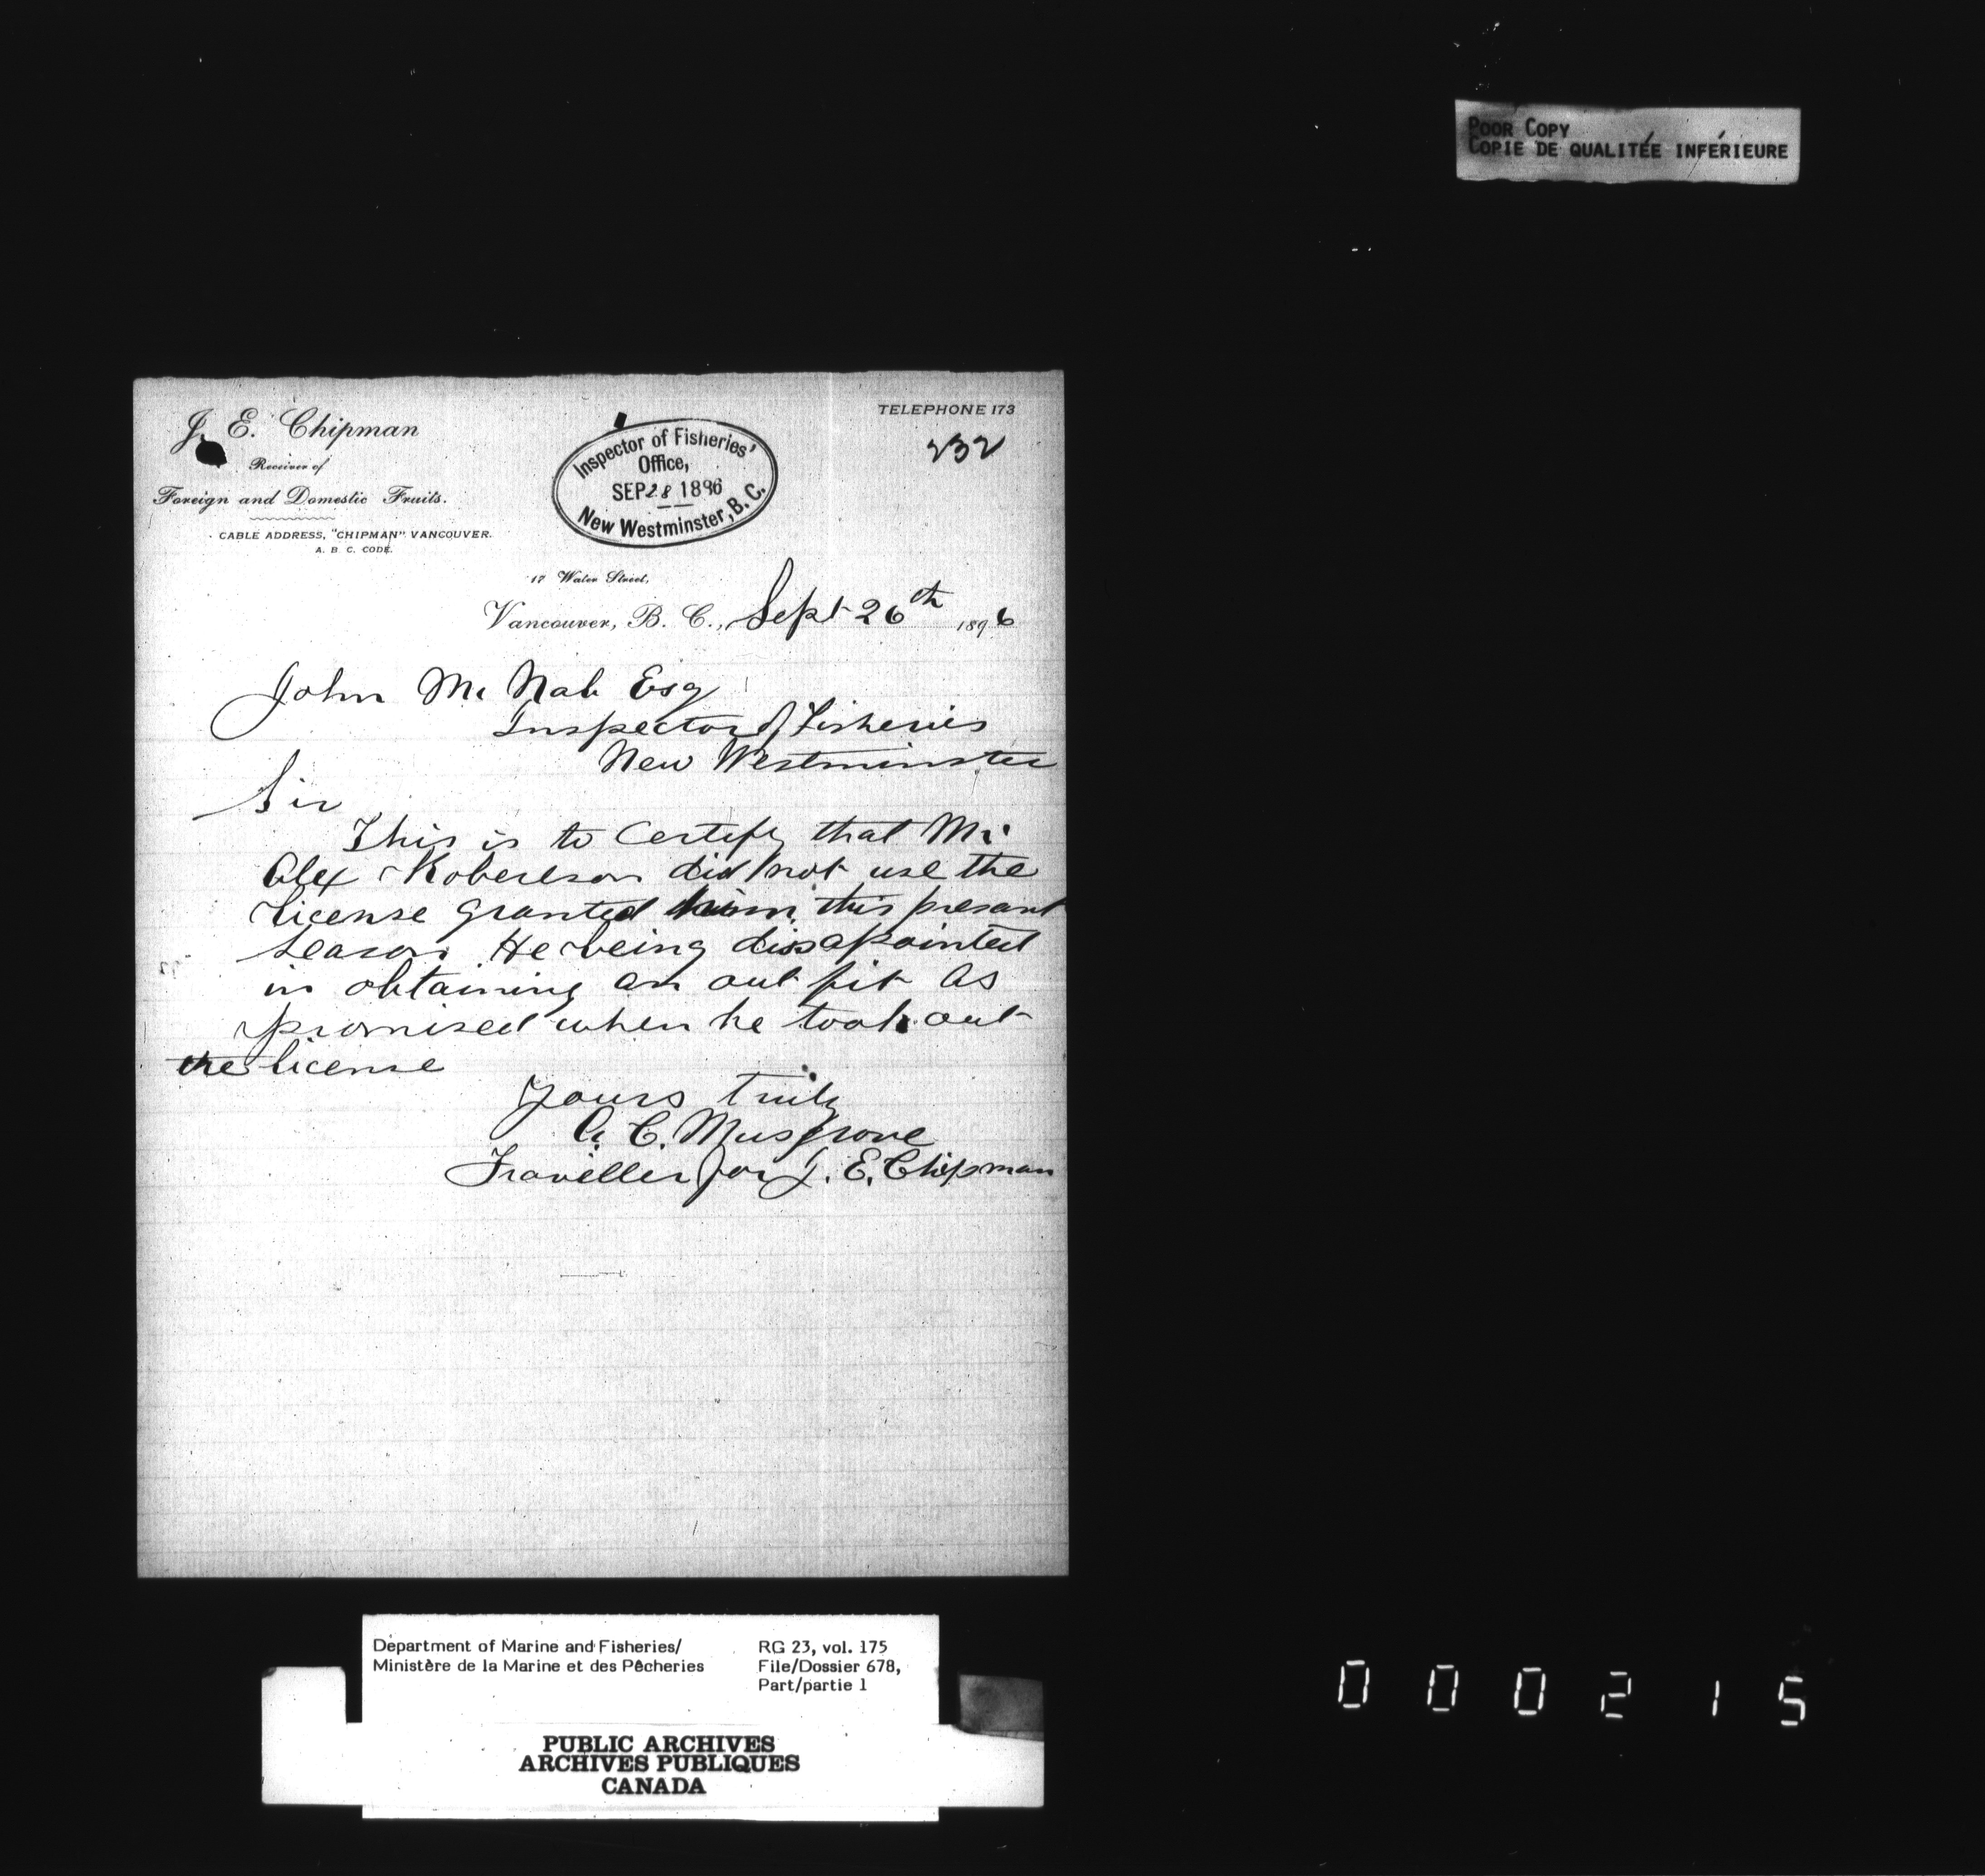 POOR COPY
COPIE DE QUALITÉE INFÉRIEURE
J. E. Chipman
Receiver of
Foreign and Domestic Fruits.
CABLE ADDRESS, "CHIPMAN" VANCOUVER.
A. B. C. CODE.
Inspector of Fisheries'
Office,
SEP 28 1896
New Westminster, B. C.
TELEPHONE 173
232
17 Water Street,
Vancouver, B. C., Sept 26th 1896
John Mc Nab Esq
Inspector of Fisheries
New Westminster
Sir
This is to Certify that Mr
Alex Robertson did not use the
License granted him this presant
season He being dissapointed
in obtaining an out fit as
promised when he took out
the license
Yours Truly
A. C. Musgrove
Traveller for J. E. Chipman
Department of Marine and Fisheries/
Ministère de la Marine et des Pêcheries
RG 23, vol. 175
File/Dossier 678,
Part/partie 1
PUBLIC ARCHIVES
ARCHIVES PUBLIQUES
CANADA
000215